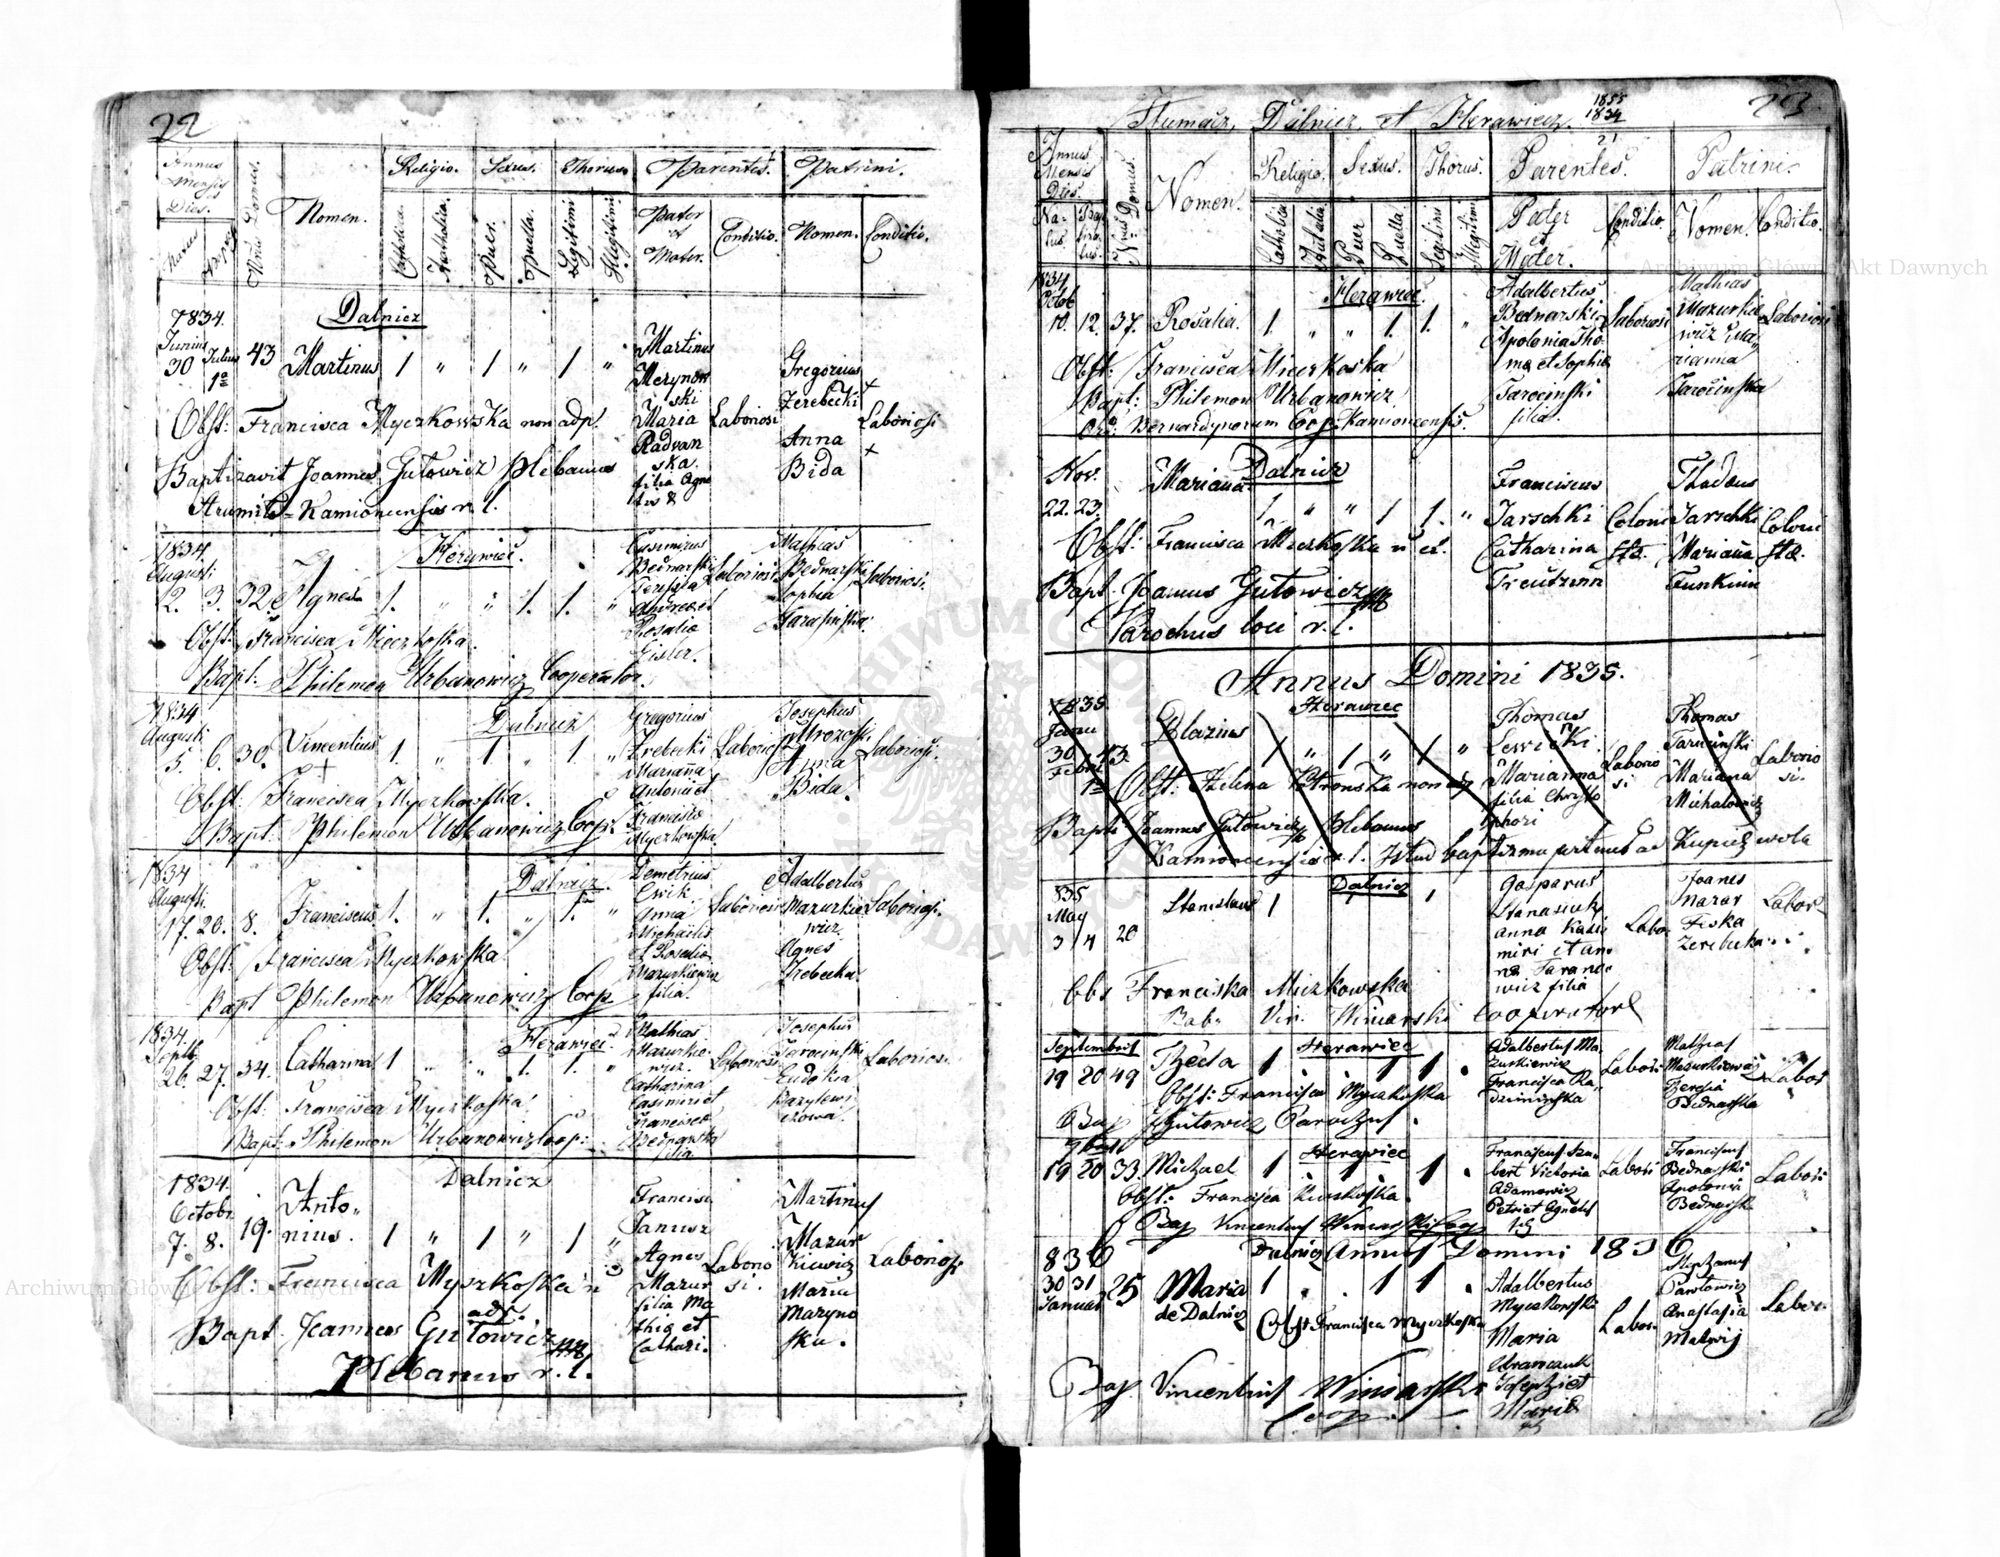 22
Annus Mensis Dies.
Natus
Nrus Domus.
Nomen.
Religio.
Sexus.
Thorus.
Parentes.
Patrini.
Catholica.
Puer.
Puella.
Legitimi
Illegitimi
Pater et Mater.
Conditio.
Nomen.
Conditio.
1834.
Dalnicz
Junius 30 Julius 1ª 43 Martinus 1 " 1 " 1 "
Martinus
Merynow
ski
Maria
Radvan
ska.
filia Agne
tis &
Laboriosi
Gregorius
Zerebecki
Anna
Bida
Laboriosi
Obst: Francisca Myczkowska non adp.
Baptizavit Joannes Gutowicz Plebanus
Kamionensis r. l.
1834.
Augusti
12. 3. 32 Agnes 1. " " 1. 1. "
Casimirus
Bednarski
Teressa
Andreae et
Rosalia
Gisler.
Laboriosi
Mathias
Bednarski
Sophia
Laboriosi.
Obst: Francisca Mieczkoska.
Bapt: Philemon Urbanowicz Cooperator.
1834
Augusti
Dalnicz
5. 6. 30. Vincentius 1. " 1 " 1. "
Gregorius
Zrebecki
Marianna
Antonii et
Francisca
Myczkowska.
Laboriosi
Josephus
Mrozoski
Anna
Bida.
Laboriosi.
Obst: Francisca Myczkowska.
Bapt: Philemon Urbanowicz Coop:
1834
Augusti.
Dalnicz.
17. 20. 8. Franciscus 1. " 1. " 1. "
Demetrius
Cwik.
Anna
Michaelis
et Rosalia
Mazurkiewicz
filia.
Laboriosi
Adalbertus
Mazurkie
wicz
Agnes
Zrebecka.
Laboriosi.
Obst: Francisca Myczkowska
Bapt Philemon Urbanowicz Coop
1834.
Septb.
Herawiec
26. 27. 34. Catharina 1 " " 1. 1. "
Mathias
Mazurkie
wicz.
Catharina
Casimiri et
Franciscae
Bednarska
filia
Laboriosi
Josephus
Jarocinski
Eudokia
Bazylewi
czowa.
Laboriosi.
Obst: Francisca Myczkoska
Bapt. Philemon Urbanowicz Coop:
1834.
Octobr
Dalnicz
7. 8. 19. Anto-
nius. 1 " 1 " 1 "
Francisc
Janusz
Agnes
Mazur
filia Ma
thia et
Cathari.
Laborio
si.
Martinus
Mazur
kiewicz
Maria
Maryno
ska.
Laboriosi
Obst: Francisca Myszkoska n
adp.
Bapt. Joannes Gutowicz
Plebanus r. l.
Tłumacz, Dalnicz, et Herawiecz. 1834
23.
Annus Mensis Dies
Na-
tus
Bap
tiza
tus.
Nrus Domus.
Nomen.
Religio.
Sexus.
Thorus.
Parentes.
Patrini.
Catholica
Puer
Puella
Legitimi
Illegitimi
Pater et Mater.
Conditio.
Nomen.
Conditio.
1834
Octob
Herawiec.
10. 12. 37. Rosalia. 1 " " 1 1. "
Adalbertus
Bednarski
Apolonia Tho
ma et Sophia
Jarocinski
filia.
Laboriosi
Mathias
Mazurkie
wicz Ma
rianna
Jarocinska
Laboriosi
Obst: Francisca Mieczkoska
Bapt: Philemon Urbanowicz
Ord: Bernardynorum Coop: Kamionensis.
Nov.
Dalnicz
22. 23. Marianna 1 " " 1 1. "
Franciscus
Jarschki
Catharina
Treutzinn
Coloni
sta.
Thadeus
Jarschki
Marianna
Funkinn
Coloni
sta.
Obst: Francisca Mieczkoska n ex.
Bapt. Joannes Gutowicz
Parochus loci r. l.
Annus Domini 1835.
1835
Janu
30
Febru
1ª
43. Blazius 1 " 1 " 1 "
Herawiec
Thomas
Lewicki
Marianna
filia Christo
phori
Laborio
si
Thomas
Tarocinski
Mariana
Michalowicz
Laborio
si.
Obst: Helena Petronska non adp
Bapt: Joannes Gutowicz Plebanus
Kamionensis r. l. Istud baptisma pertinet ad Kupicz wola
835
May
3/4 20 Stanislaus 1 1
Dalnicz
Gasparus
Stanasiuk
anna Kasi
miri et an
na Tarano
wicz filia
Labor
Joanes
Mazar
Fiska
Zerebecka
Labor
Obs Franciska Miczkowska
Bab. Vin. Winiarski Cooperator
Septembris
Herawiec
19 20 49 Thecla 1 1 1
Adalbertus Ma
zurkiewicz
Francisca Ra
dziminska
Labori
Mathias
Mazurkiewicz
Teresia
Bednarska
Labor
Obst: Francisca Myczkoska
Bap J Gutowicz Parochus.
9bris
Herawiec
19 20 33. Michael 1 1 1
Franciscus Szu
bert Victoria
Adamowicz
Petri et Agnetis
Labori
Franciscus
Bednarski
Apolonia
Bednarska
Labori
Obst: Francisca
Bap Vincentius Winiarski Coop
836
Dalnicz Annus Domini 1836
30 31
Januar 25 Maria 1 . . 1 1 .
de Dalnicz
Adalbertus
Myczkowski
Maria
Josephi et
Maria
Labor.
Stephanus
Pawlowicz
Anastasia
Matwij
Labor.
Obst Francisca Myczkoska
Bap Vincentius Winiarski
Coop.
Archiwum Główne Akt Dawnych